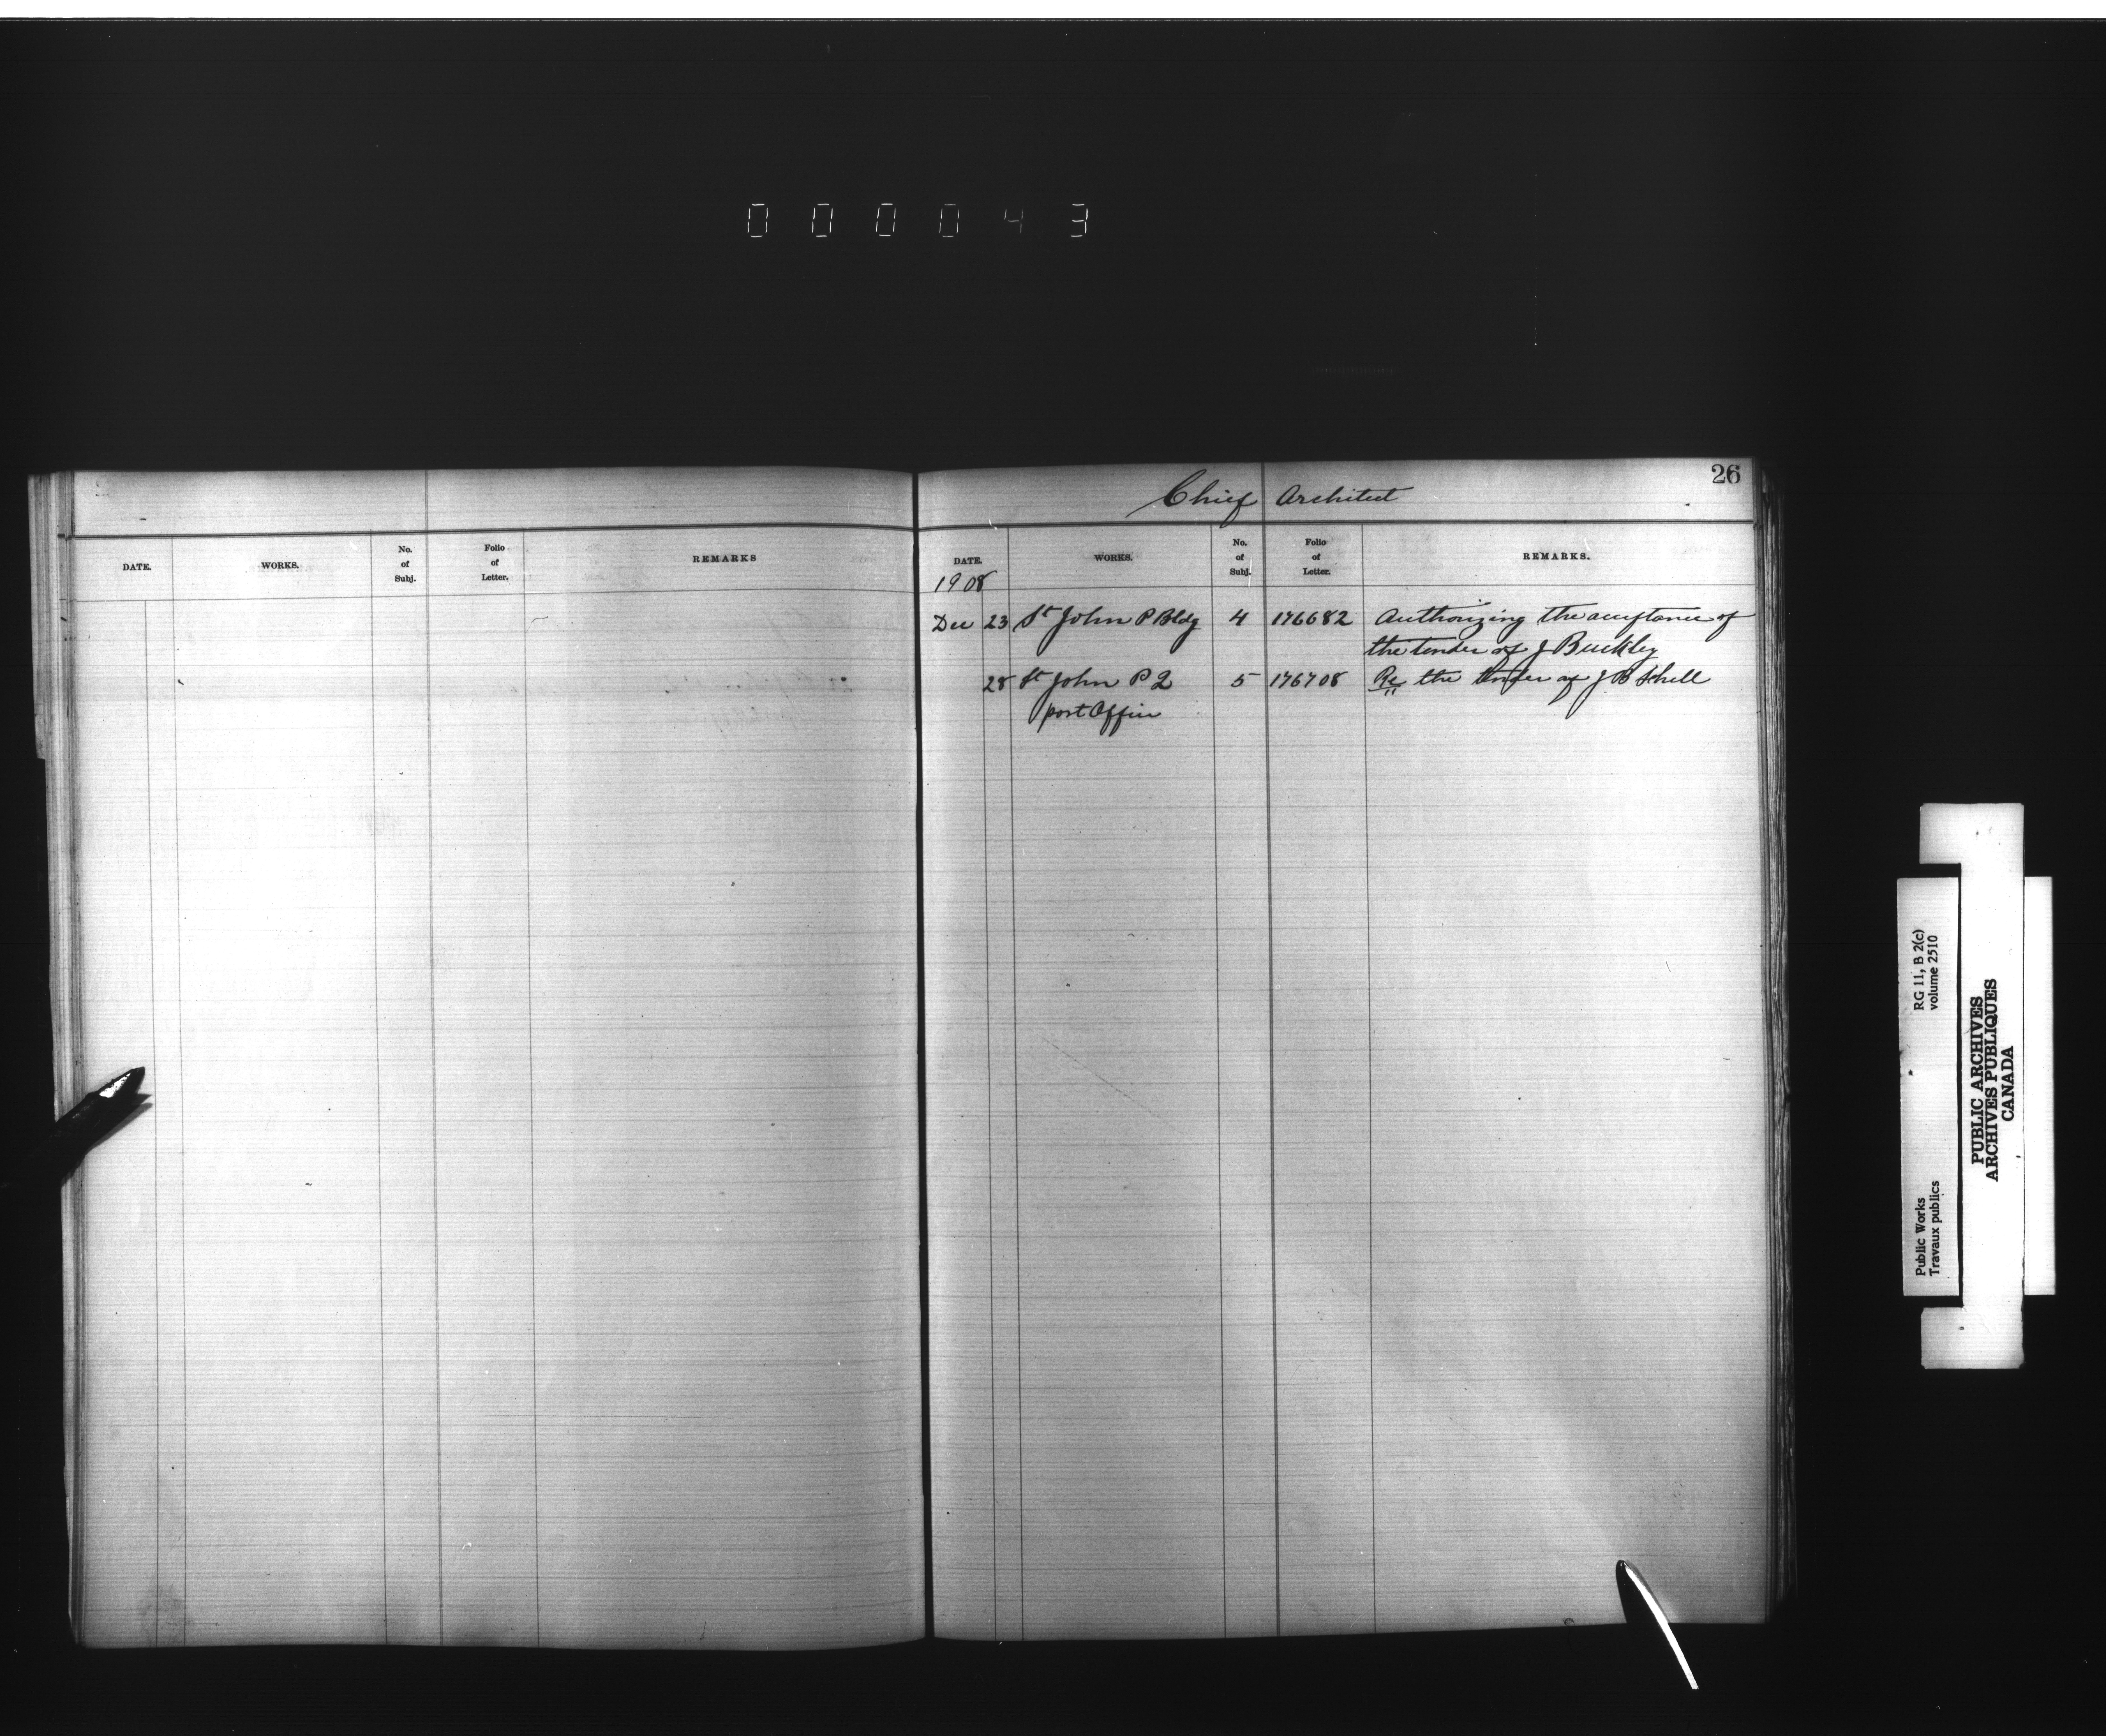 000043
26
Chief Architect
DATE. WORKS. No. of Subj. Folio of Letter. REMARKS
DATE. WORKS. No. of Subj. Folio of Letter. REMARKS.
1908
Dec 23 St John P Bldg 4 176682 Authorizing the acceptance of
the tender of J Buckley
28 St John P Q 5 176708 Re the tender of J B Schell
post Office
Public Works RG 11, B 2(c)
Travaux publics volume 2510
PUBLIC ARCHIVES
ARCHIVES PUBLIQUES
CANADA